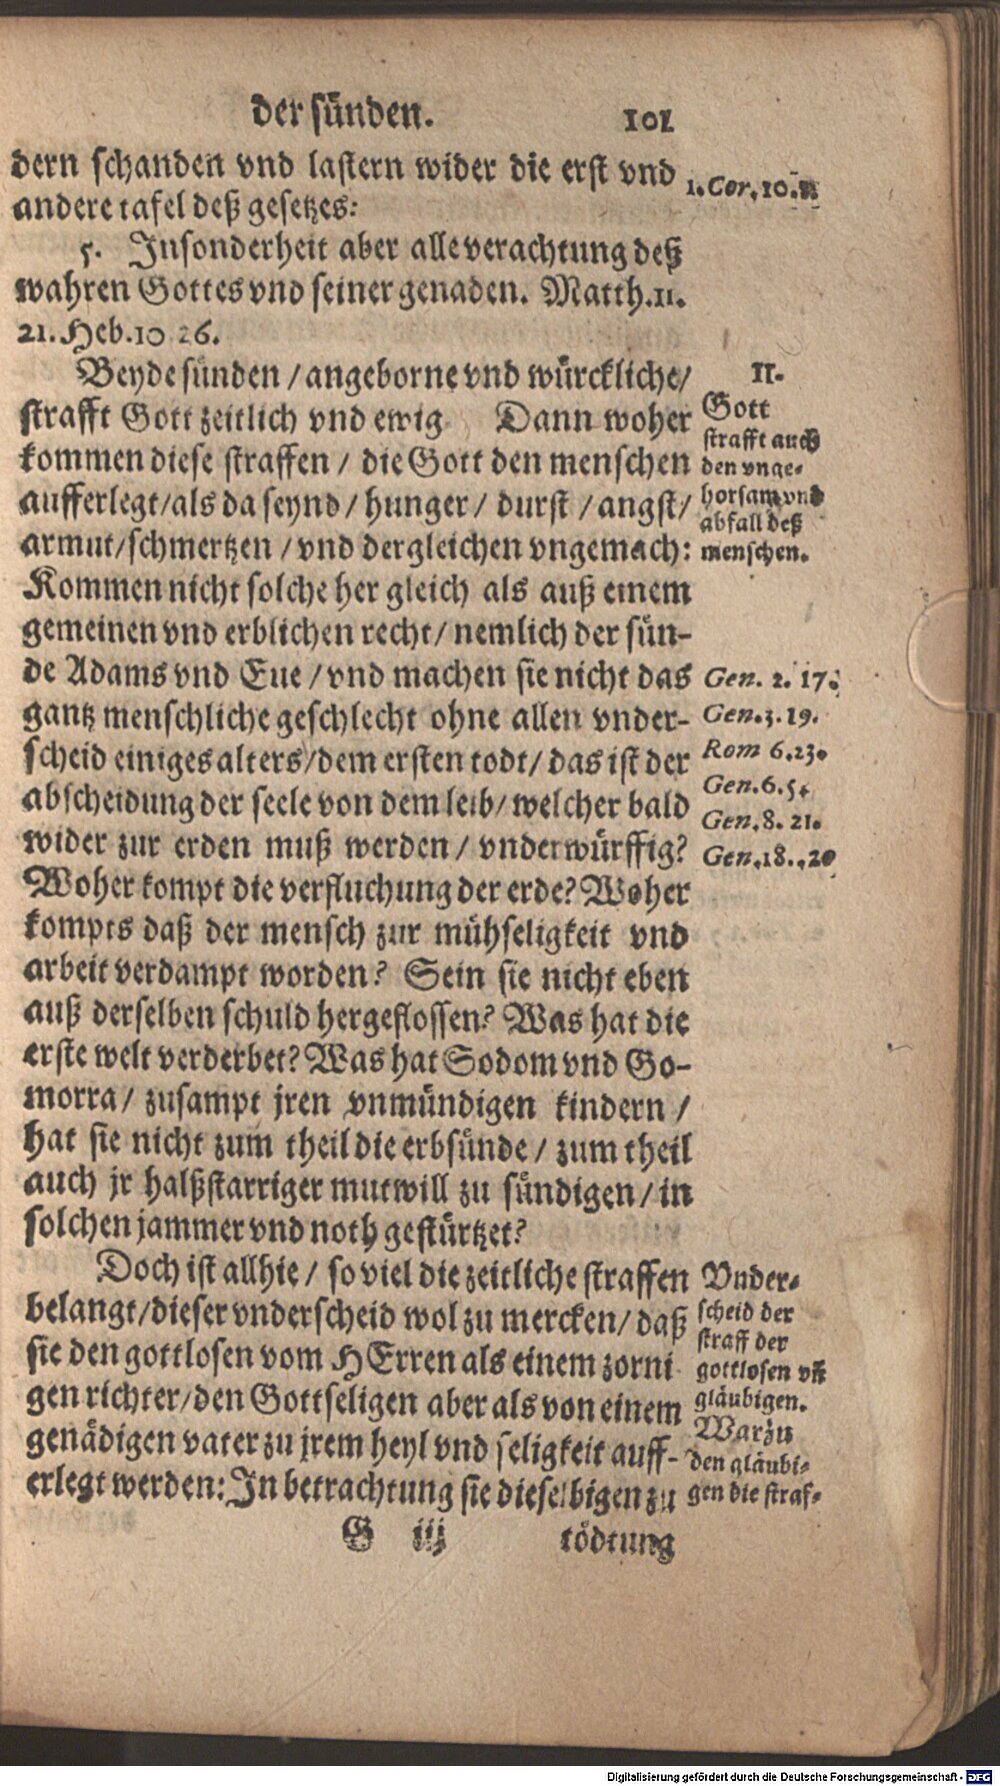 der sünden. 101
dern schanden vnd lastern wider die erst vnd
andere tafel deß gesetzes:
1. Cor. 10.
5. Insonderheit aber alle verachtung deß
wahren Gottes vnd seiner genaden. Matth. 11.
21. Heb. 10 26.
Beyde sünden / angeborne vnd würckliche/
strafft Gott zeitlich vnd ewig Dann woher
kommen diese straffen / die Gott den menschen
aufferlegt/als da seynd / hunger / durst / angst/
armut/schmertzen / vnd dergleichen vngemach:
Kommen nicht solche her gleich als auß einem
gemeinen vnd erblichen recht/ nemlich der sün-
de Adams vnd Eue / vnd machen sie nicht das
gantz menschliche geschlecht ohne allen vnder-
scheid einiges alters/dem ersten todt/ das ist der
abscheidung der seele von dem leib/ welcher bald
wider zur erden muß werden / vnderwürffig?
Woher kompt die verfluchung der erde? Woher
kompts daß der mensch zur mühseligkeit vnd
arbeit verdampt worden? Sein sie nicht eben
auß derselben schuld hergeflossen? Was hat die
erste welt verderbet? Was hat Sodom vnd Go-
morra / zusampt jren vnmündigen kindern /
hat sie nicht zum theil die erbsünde / zum theil
auch jr halßstarriger mutwill zu sündigen / in
solchen jammer vnd noth gestürtzet?
II.
Gott
strafft auch
den vnge-
horsam vnd
abfall deß
menschen.
Gen. 2. 17.
Gen. 3. 19.
Rom 6. 23.
Gen. 6. 5.
Gen. 8. 21.
Gen. 18. 20
Doch ist allhie / so viel die zeitliche straffen
belangt/dieser vnderscheid wol zu mercken/ daß
sie den gottlosen vom HErren als einem zorni
gen richter/den Gottseligen aber als von einem
genädigen vater zu jrem heyl vnd seligkeit auff-
erlegt werden: In betrachtung sie dieselbigen zu
Vnder-
scheid der
straff der
gottlosen vñ
gläubigen.
Warzu
den gläubi-
gen die straf-
G iij tödtung
Digitalisierung gefördert durch die Deutsche Forschungsgemeinschaft - DFG